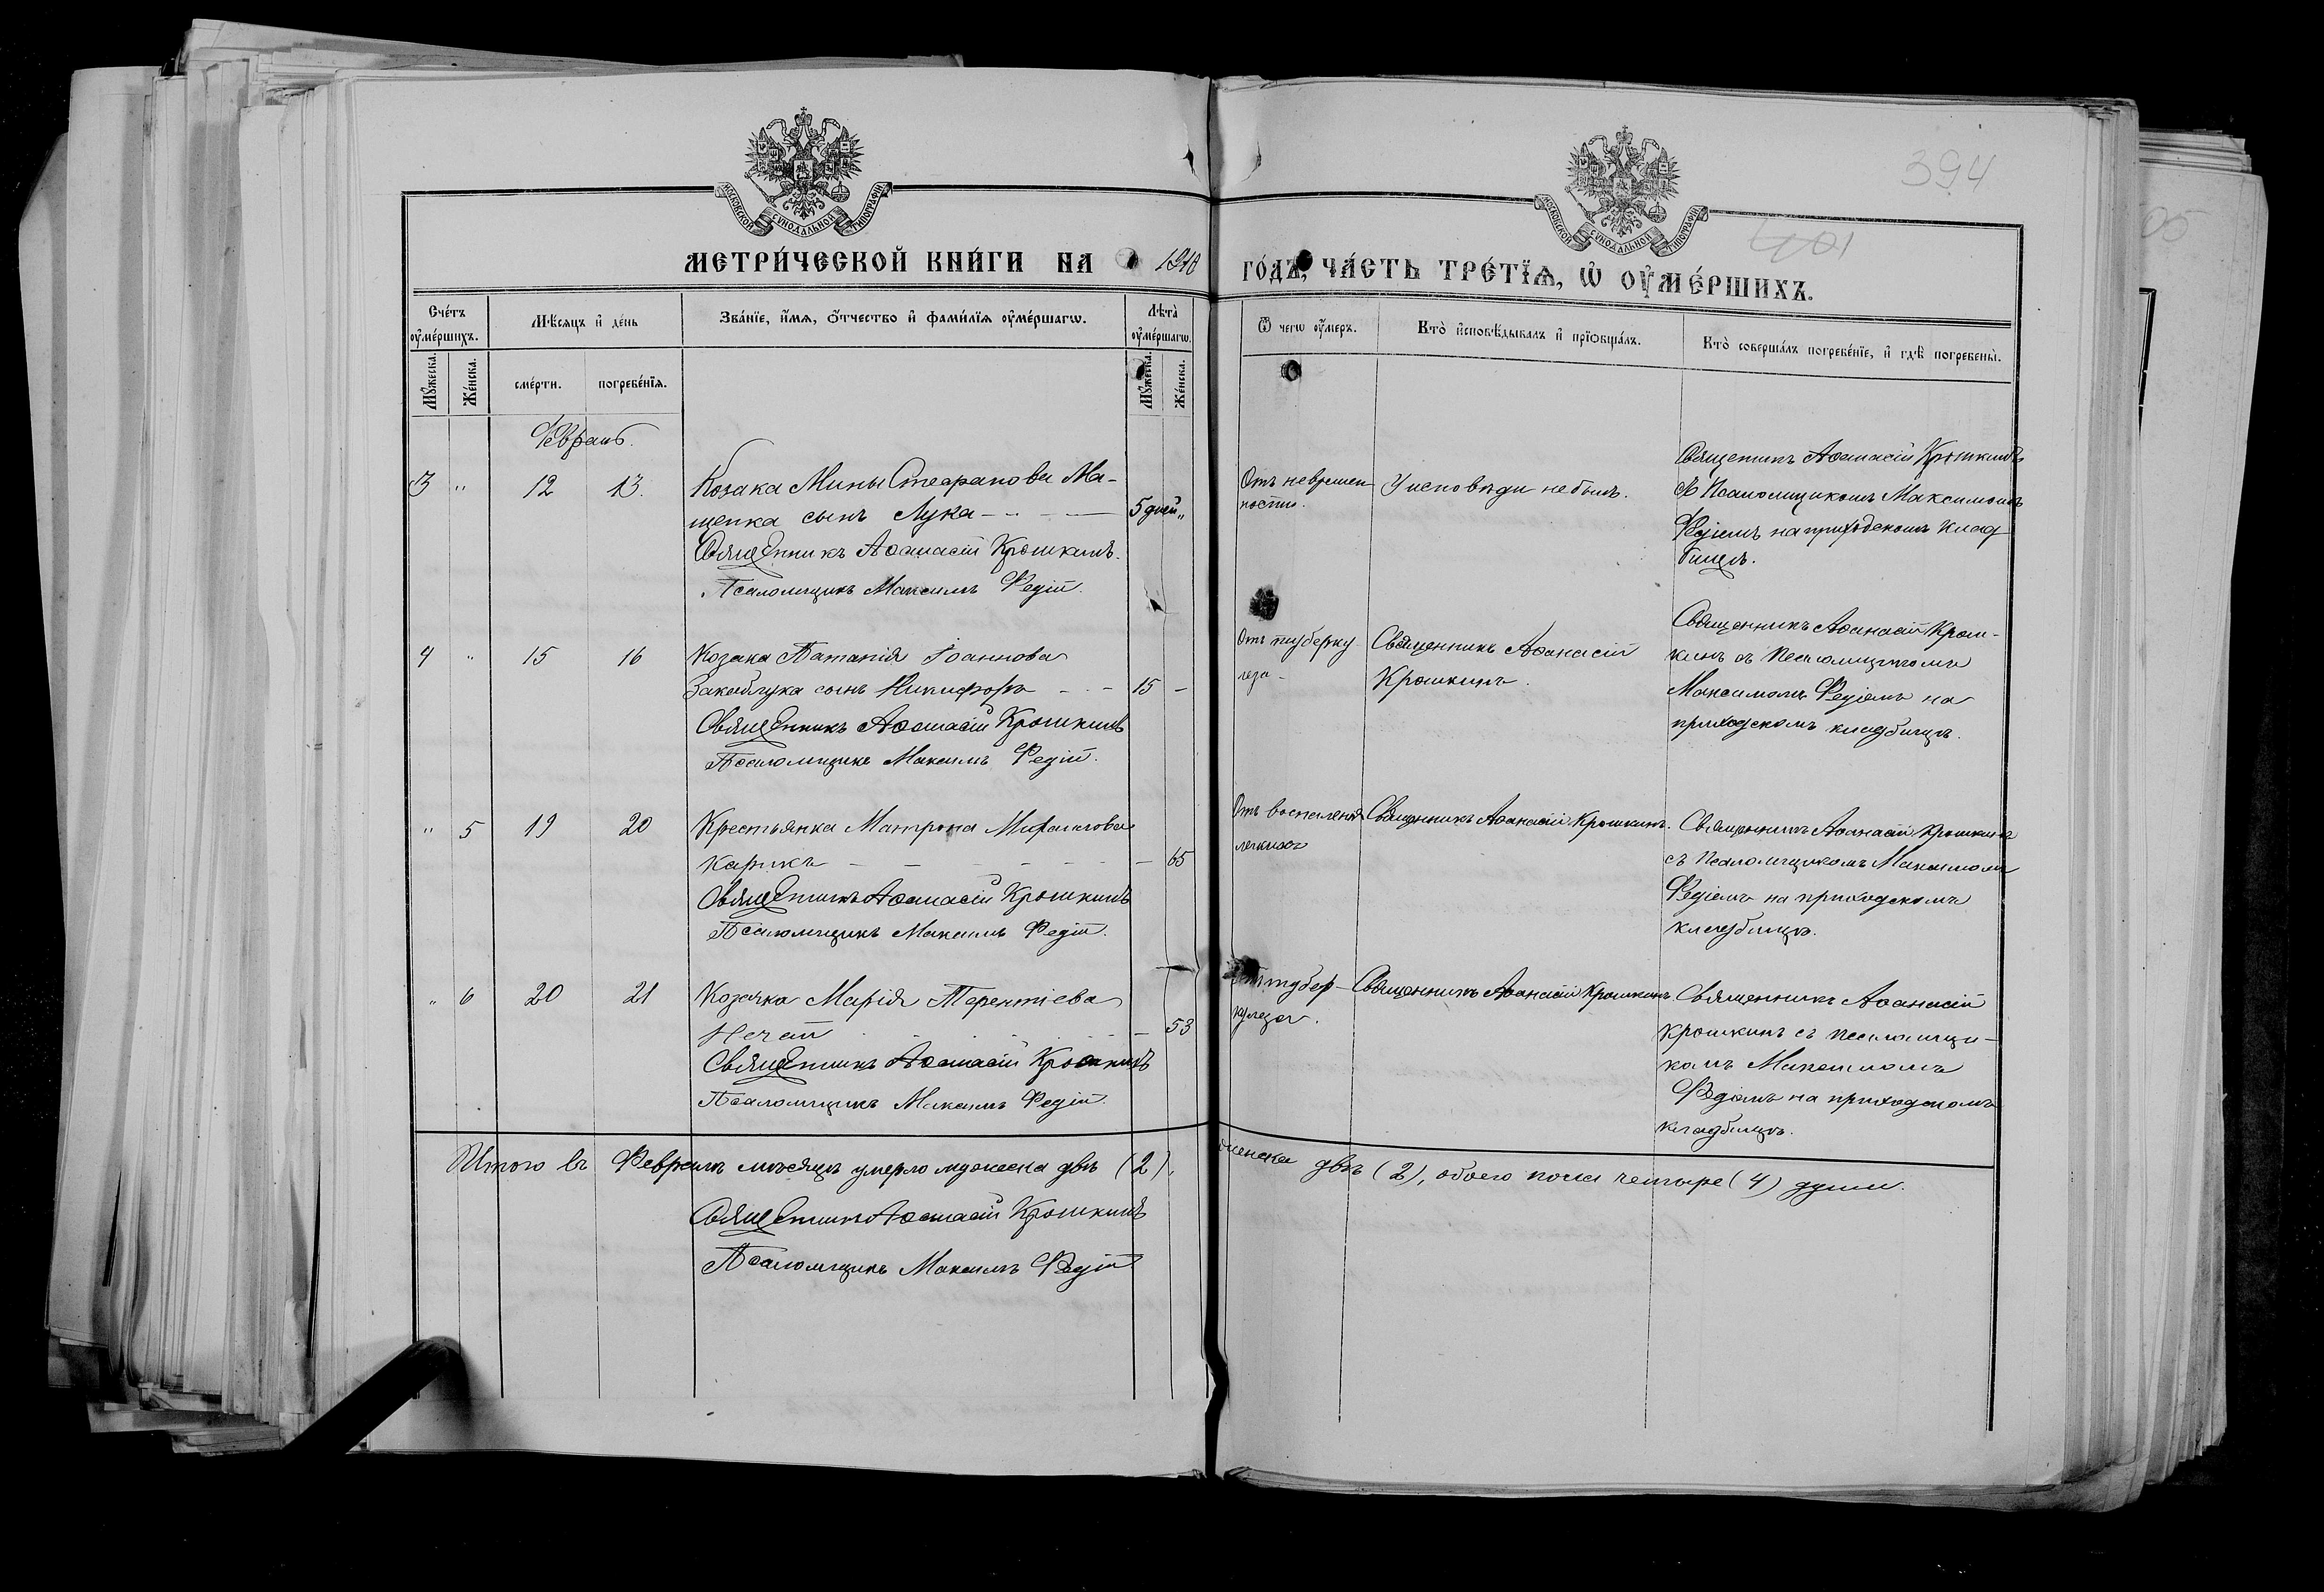 394
401
МОСКОВСКОЙ СУНОДАЛЬНОЙ ТИПОГРАФІИ
МОСКОВСКОЙ СУНОДАЛЬНОЙ ТИПОГРАФІИ
МЕТРИ́ЧЕСКОЙ КНИ́ГИ НА 1910 ГО́ДЪ, ЧА́СТЬ ТРЕ́ТЇѦ, Ѡ҆ ОУ҆МЕ́РШИХЪ.
Сче́тъ оу҆ме́ршихъ.
Мѣ́сяцъ и҆ де́нь
Зва́нїе, и҆́мѧ, ѻ҆́тчество и҆ фами́лїѧ оу҆ме́ршагѡ.
Лѣ́та̀ оу҆ме́ршагѡ.
Ѿ чегѡ оу҆́меръ.
Кто̀ и҆сповѣ́дывалъ и҆ прїѻбща́лъ.
Кто̀ соверша́лъ погребе́нїе, и҆ гдѣ̀ погребены̀.
Мꙋ́жеска.
Же́нска.
сме́рти.
погребе́нїѧ.
Мꙋ́жеска.
Же́нска.
Февраль.
3 " 12 13. Козака Мины Стефанова Ма-
щенка сынъ Лука 5 дней "
Священникъ Аѳанасій Крошкинъ.
Псаломщикъ Максимъ Редій.
Отъ невремен
ности.
У исповѣди не былъ.
Священникъ Аѳанасій Крошкинъ
съ Псаломщикомъ Максимомъ
Редіемъ на приходскомъ клад
бищѣ.
4 " 15 16 Козака Патапія Іоаннова
Закаблука сынъ Никифоръ 15 -
Священникъ Аѳанасій Крошкинъ
Псаломщикъ Максимъ Редій.
Отъ туберку
леза
Священникъ Аѳанасій
Крошкинъ.
Священникъ Аѳанасій Крош-
кинъ съ Псаломщикомъ
Максимомъ Редіемъ на
приходскомъ кладбищѣ.
" 5 19 20 Крестьянка Матрона
Карикъ - 65
Священникъ Аѳанасій Крошкинъ
Псаломщикъ Максимъ Редій.
Отъ воспаленія
легкихъ
Священникъ Аѳанасій Крошкинъ.
Священникъ Аѳанасій Крошкинъ
съ Псаломщикомъ Максимомъ
Редіемъ на приходскомъ
кладбищѣ.
" 6 20 21 Козачка Марія Терентіева
Нечай - 53
Священникъ Аѳанасій Крошкинъ
Псаломщикъ Максимъ Редій.
Отъ тубер-
кулеза.
Священникъ Аѳанасій Крошкинъ
Священникъ Аѳанасій
Крошкинъ съ Псаломщи-
комъ Максимомъ
Редіемъ на приходскомъ
кладбищѣ.
Итого въ Февралѣ мѣсяцѣ умерло мужеска двѣ (2), женска двѣ (2), обоего пола четыре (4) души.
Священникъ Аѳанасій Крошкинъ
Псаломщикъ Максимъ Редій